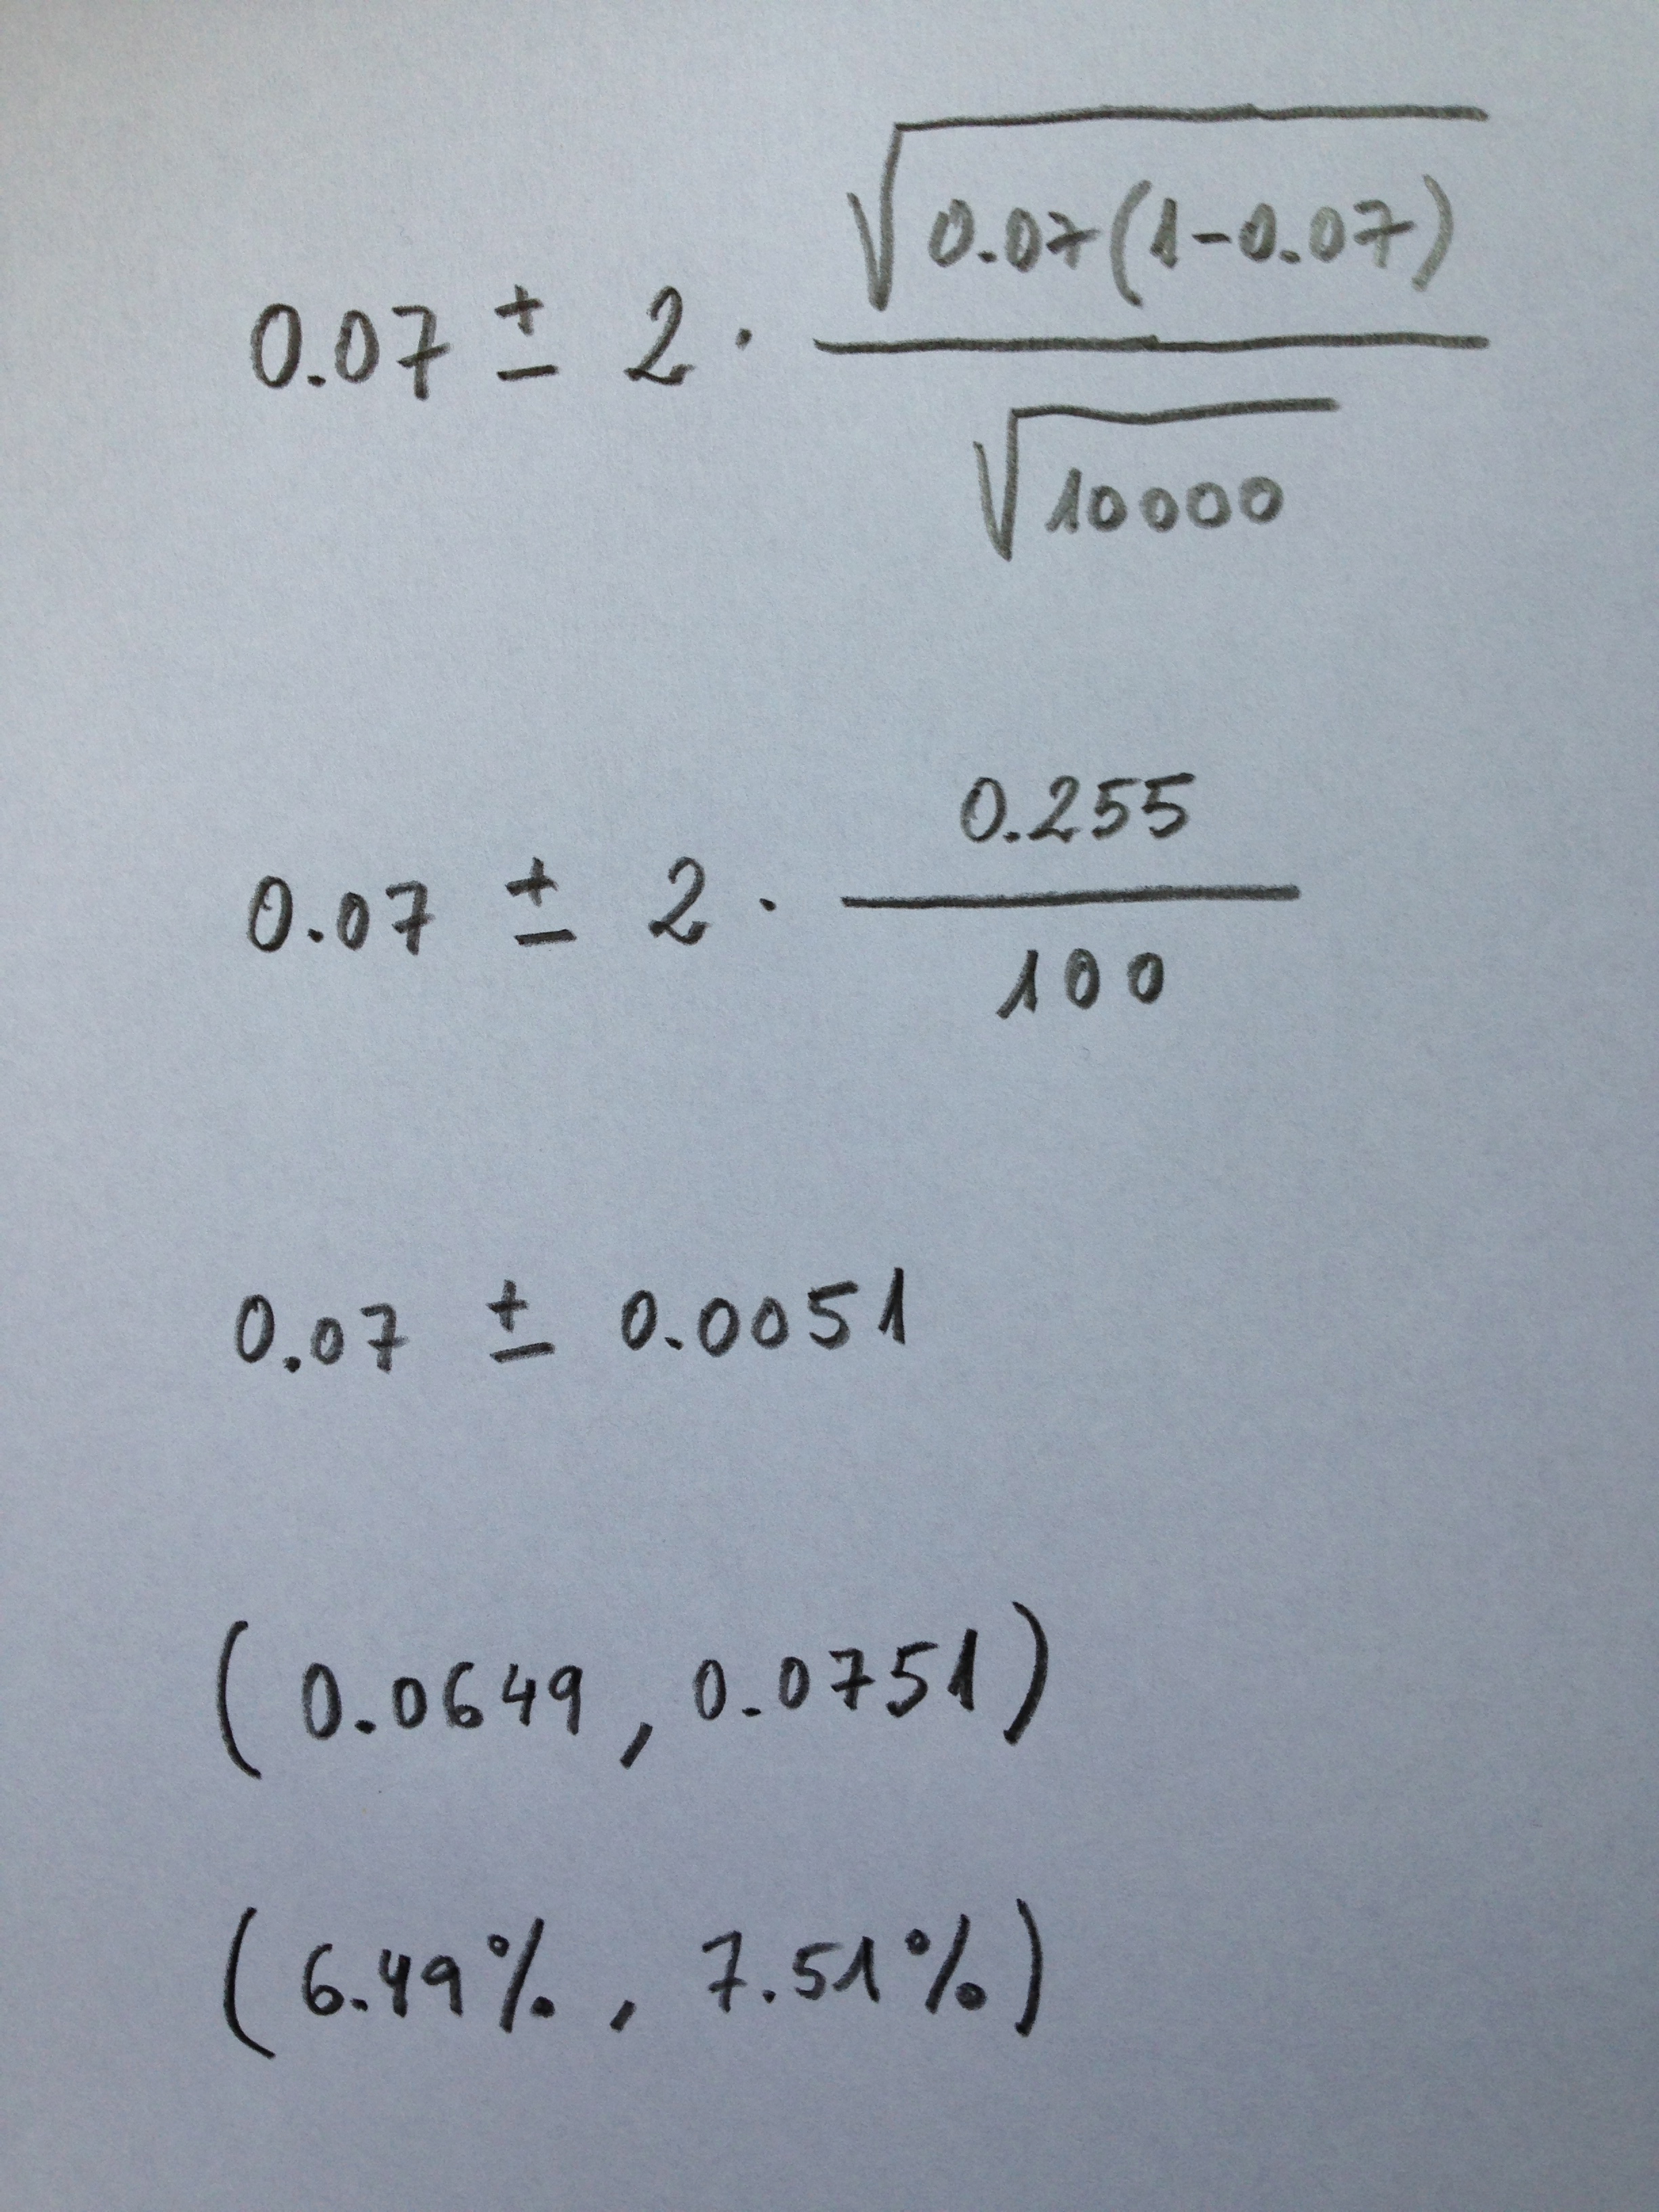 0.07 ± 2 · √0.07(1-0.07) / √10000
0.07 ± 2 · 0.255 / 100
0.07 ± 0.0051
(0.0649, 0.0751)
(6.49%, 7.51%)